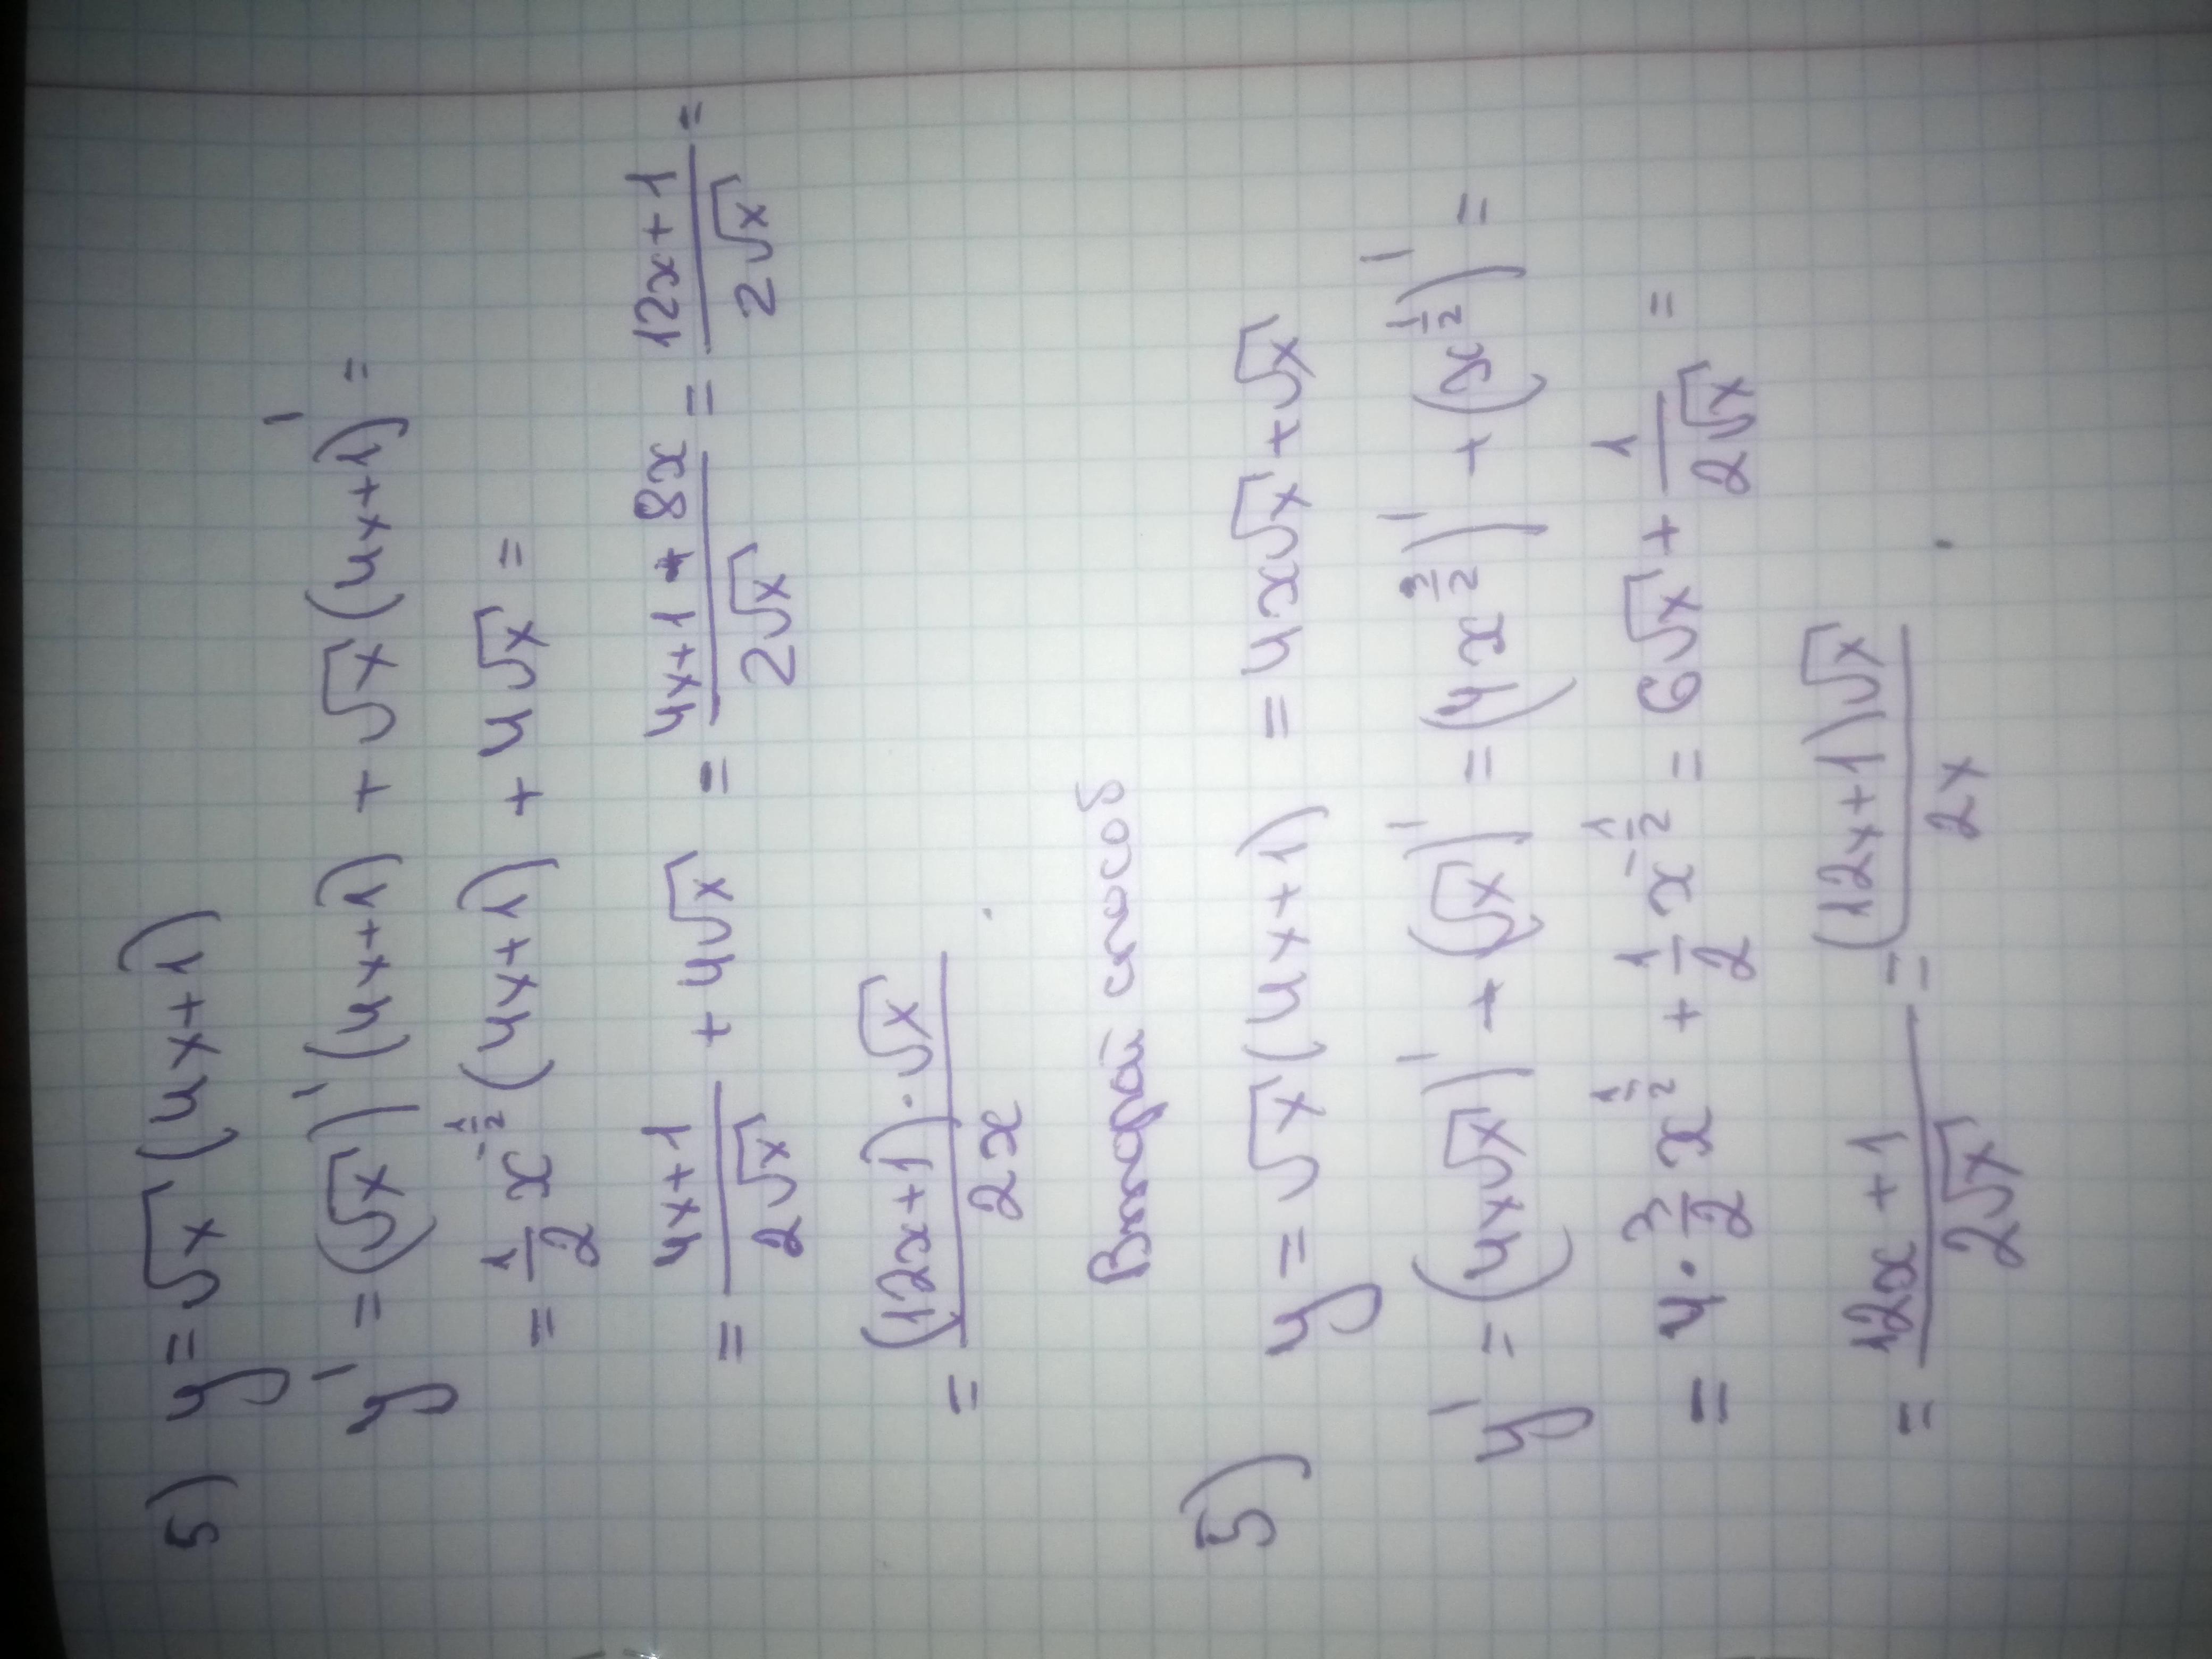 5) y = √x (4x+1)
y' = (√x)' (4x+1) + √x (4x+1)' =
= 1/2 x^(-1/2) (4x+1) + 4√x =
= (4x+1)/(2√x) + 4√x = (4x+1+8x)/(2√x) = (12x+1)/(2√x) =
= ((12x+1)·√x)/(2x).
Второй способ
5) y = √x (4x+1) = 4x√x + √x
y' = (4x√x)' + (√x)' = (4x^(3/2))' + (x^(1/2))' =
= 4·3/2 x^(1/2) + 1/2 x^(-1/2) = 6√x + 1/(2√x) =
= (12x+1)/(2√x) = ((12x+1)√x)/(2x).